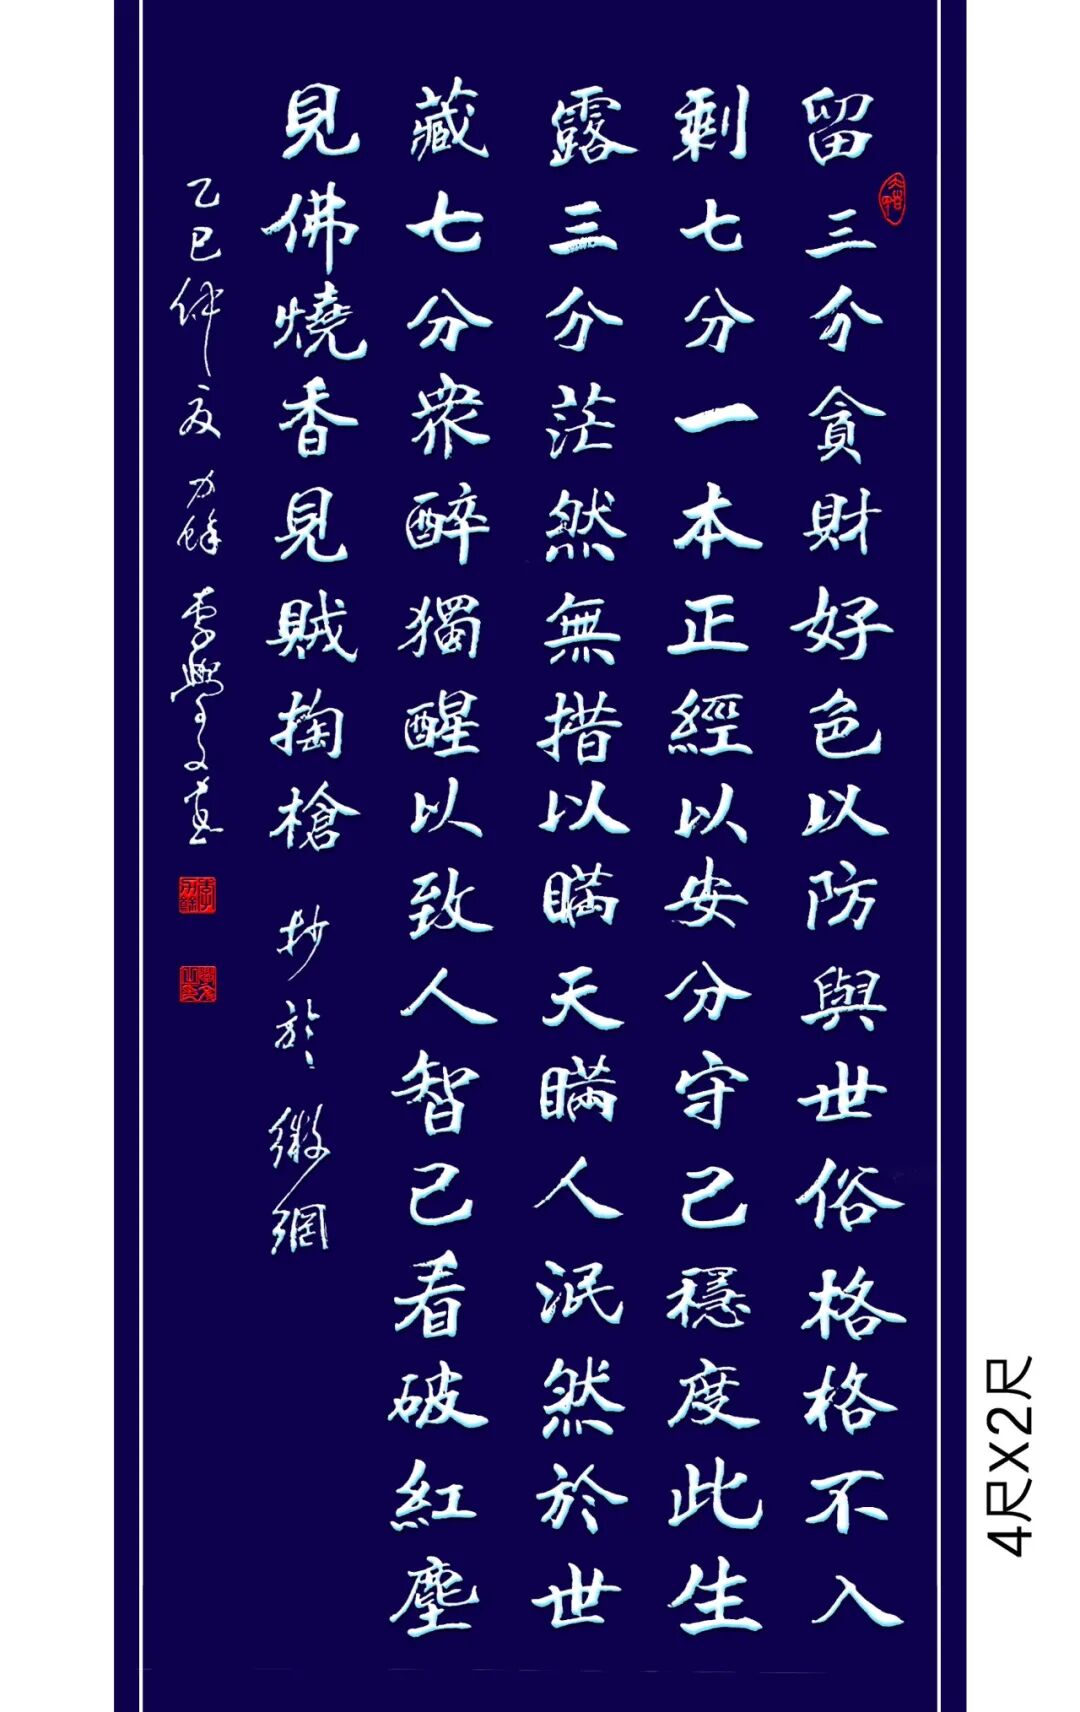 留三分貪財好色以防與世俗格格不入
剩七分一本正經以安分守己穩度此生
露三分茫然無措以瞞天瞞人泯然於世
藏七分眾醉獨醒以致人智己看破紅塵
見佛燒香見賊掏槍 抄於微網
乙巳仲夏 力鋒 李學文書
4尺X2尺